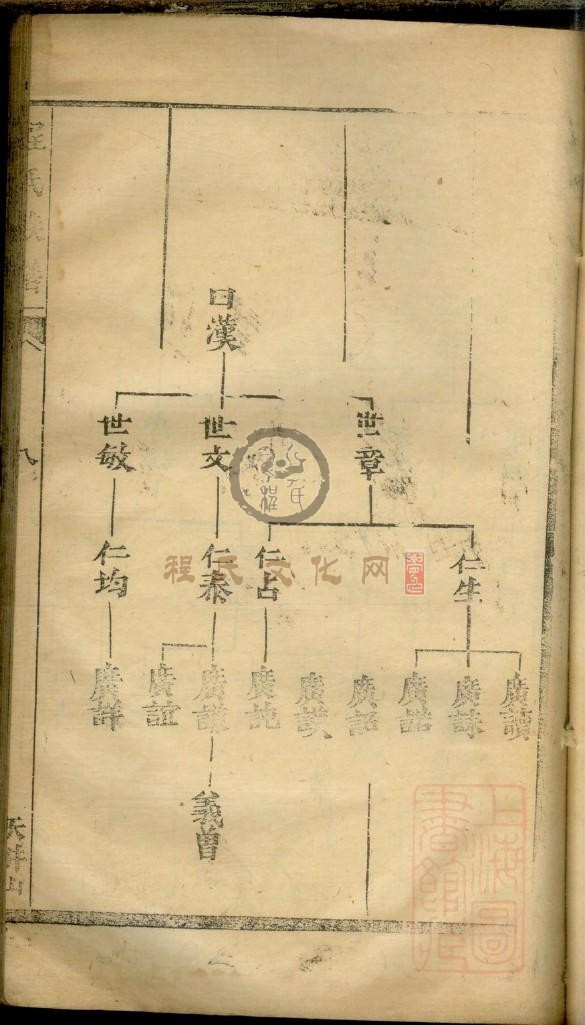 日漢
世章
世文
世敏
仁生
仁占
仁泰
仁均
廣讀
廣詠
廣誥
廣詔
廣謨
廣訑
廣謙
廣誼
廣詳
義曾
程氏族譜
天井山
程氏文化网
上海圖書館藏